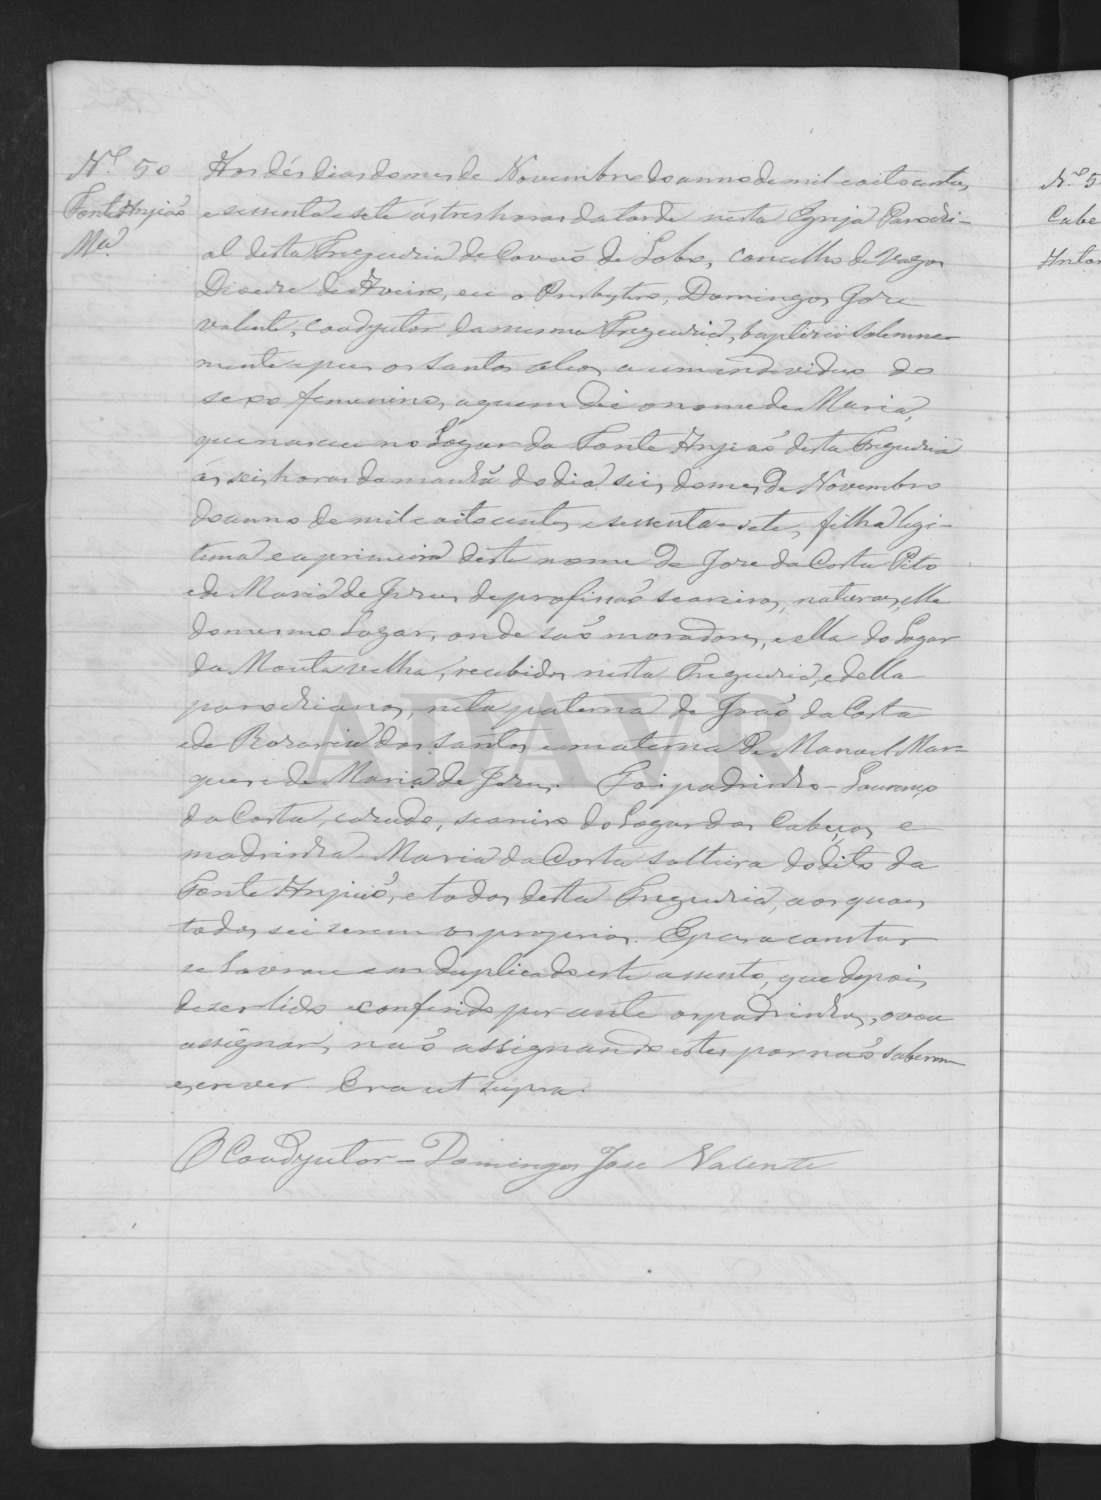 N.º 50
Fonte Anjiaõ
M.ª
Aos dés dias do mes de Novembro do anno de mil e oito centos
e sessenta e sete ás tres horas da tarde nesta Egreja Parochi-
al desta Freguezia de Covaõ do Lobo, concelho de Vagos
Diocese de Aveiro, eu o Presbytero, Domingos Jose
Valente, coadjutor da mesma Freguezia, baptizei solemne-
mente e pus os santos oleos a um individuo do
sexo femenino, a quem dei o nome de Maria,
que nasceu no Logar da Fonte Anjiaõ desta Freguezia
as seis horas da manhã do dia seis do mes de Novembro
do anno de mil e oito centos e sessenta e sete, filha legi-
tima e a primeira deste nome de Jose da Costa Pito
e de Maria de Jezus de profissaõ seareiros, naturaes, elle
do mesmo Logar, onde saõ moradores, e ella do Logar
da Mouta velha, recebidos nesta Freguezia, e della
parochianos, neta paterna de Joaõ da Costa
e de Rozaria dos santos e materna de Manoel Mar-
ques e de Maria de Jezus. Foi padrinho - Lourenço
da Costa, cazado, seareiro do Logar das Cabeças, e
madrinha - Maria da Costa solteira do dito da
Fonte Anjiaõ, e todos desta Freguezia, aos quaes
todos sei serem os proprios. E para constar
se lavrou em duplicado este assento, que depois
de ser lido e conferido perante os padrinhos, o vou
assignar, naõ assignando estes por naõ saberem
escrever. Era ut supra.
O Coadjutor - Domingos Jose Valente
ADAVR
N.º 5
Cabe
Anton